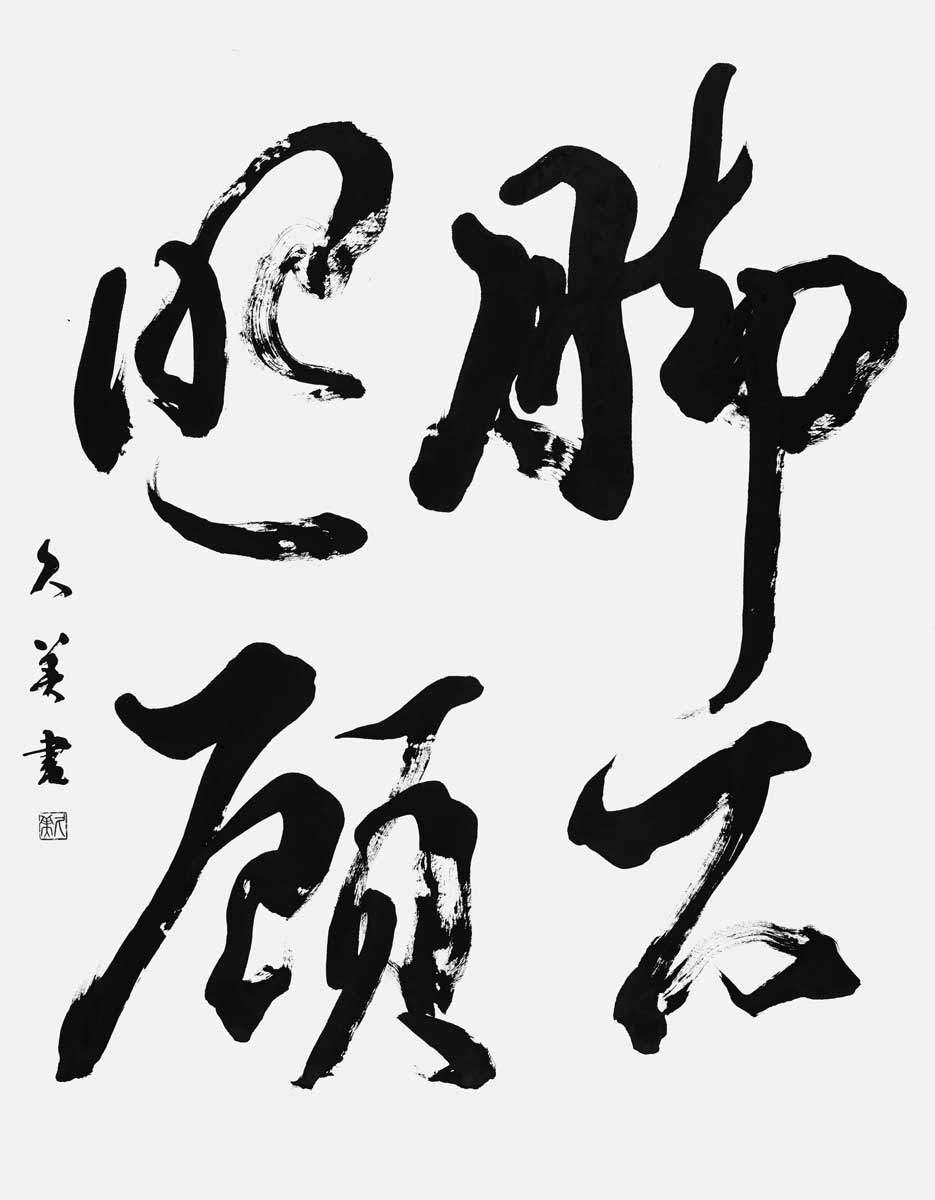 脚下
照顧
久美書